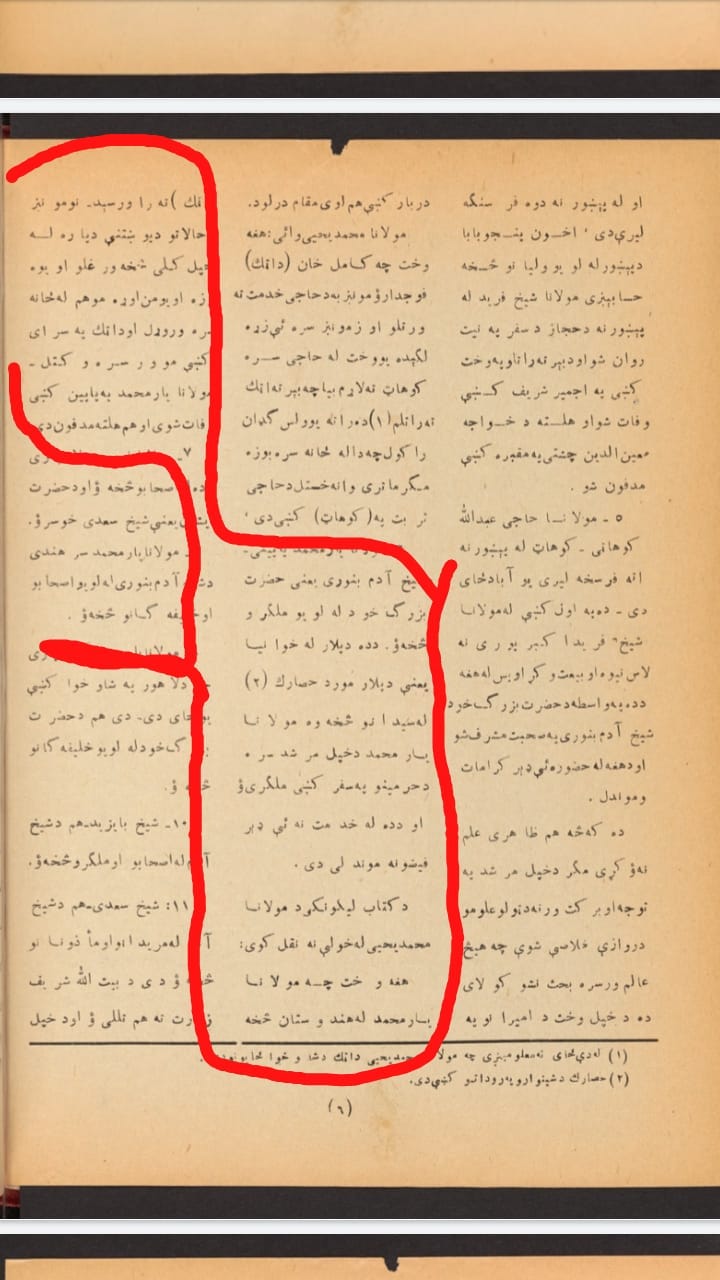 او له پېښور نه دوه فر سنگه
لیرې‌دی ' اخـــون پنـــجو بابا
دپېښورله لو یو ولیا نو څـــخه
حسابېږی مولانا شیخ فرید له
پېښورنه دحجاز د سفر په نیت
روان شو اودبېر ته‌راتلو په وخت
کښې په اجمیر شریف کــښې
وفات شو او هلـــته د خـــواجه
معین الدین چشتی په مقبره کښې
مدفون شو .
۵ ـ مولانـــا حاجی عبدالله
کوهاتی ـ کوهاټ له پېښور نه
اته فرسخه لیرې یو آبادځای
دی ـ ده‌په اول کښې له‌مولانا
شیخ فر یدا کبر پو ری نه
لاس نیوه او بیعت و کړ او بس له‌هغه
دده په و اسطه‌دحضرت بزرگ خود
شیخ آدم بنوری په‌صحبت‌مشرف شو
اودهغه له حضوره‌ئې ډېر کرامات
وموندل .
ده که‌څه هم ظا هری علم
نه‌ؤ کړی مگر دخپل مر شد په
توجه‌او بر کت ورنه‌دټولو علومو
دروازې خلاصې شوې چه هیڅ
عالم ورسره بحث نشو کو لای
ده د خپل وخت د امیرا نو په
دربار کښې هم اوی مقام درلود.
مولانا محمدیحیی وائی:هغه
وخت چه کــامل خان (داټک)
فوجدارؤ مونږ به دحاجی خدمت ته
ورتلو او زمونږ سره ئې‌زړه
لګېده یووخت له حاجی ســـره
کوهاټ ته‌لاړم بیاچه‌بېر ته‌اټک
ته‌راتلم(۱)ده‌راته یوولس گډان
راکول چه‌داله ځانه سره‌بوزه
مگرماتری وانه‌خستل دحاجی
تر بت په(کوهاټ) کښې‌دی '
مولانا یارمحمد پاپینی‌ـ
شیخ آدم بنوری یعنې حضرت
بزرگ خو د له لو یو ملگر و
څخه‌ؤ. دده دپلار له خوا نیـــا
یعنې دپلار مورد حصارک (۲)
له‌سیدا نو څخه وه مو لا نـــا
یـــار محمد دخپل مر شد سر ه
دحرمینو په‌سفر کښې ملگری‌ؤ
او دده له خد مت نه ئې ډېر
فیضونه موند لی دی .
د کتاب لیکونکی‌د مولانـــا
محمدیحیی له‌خولې نه نقل کوی:
هغه و خت چـــه مو لا نـــا
یـــارمحمد له‌هند و ستان څخه
اټک )ته را ورسېد۔ نومو نږ
حالاتو دیو ښتنې دپا ره لـــه
خپل کلی څخه‌ور غلو او یوه
زه اویومن‌اوړه موهم له‌ځانه
سره وروړل اوداټك په سر ای
کښې مو و ر ســـره و کتل ـ
مولانا یارمحمد په‌پاپین کښې
وفات‌شوی‌اوهم هلته‌مدفون‌دی
۷ـ
صحابو څخه ؤاودحضرت
یعنې شیخ سعدی خوسرؤ.
مولانایارمحمد سر هندی
آدم بنوری له‌لو یو اصحابو
او خلیفه گـــانو څخه‌ؤ .
مولانا
دلا هور په شاو خوا کښې
ځای دی۔ دی هم دحضر ت
گ خودله لویو خلیفه گانو
څخه ؤ.
۱۰ـ شیخ بایزید۔هم دشیخ
آدم له‌اصحابو اوملگروڅخه‌ؤ.
۱۱: شیخ سعدی‌۔هم دشیخ
آدم له‌مریدانواومأ ذونـــا نو
څخه ؤ د ی د بیت الله شر یف
زیارت ته هم تللی ؤ اود خپل
(۱) له‌دې‌ځای نه‌معلومېږی چه مولانا محمدیحیی داټك دشا و خوا
(۲) حصارك دشینوارو په‌رودا‌تو کښې‌دی.
(۶)